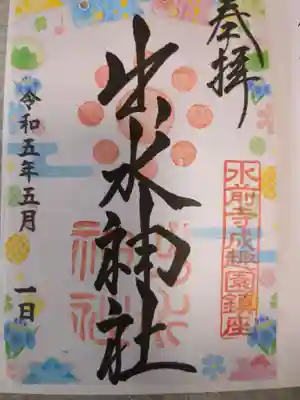 奉拝
水前寺成趣園鎮座
出水神社
令和五年五月
一日